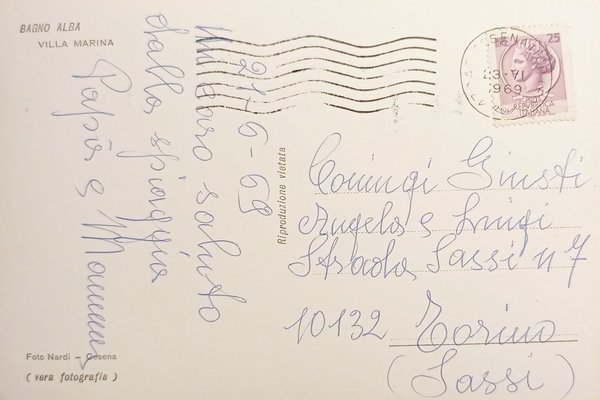 BAGNO ALBA
VILLA MARINA
21-6-69
Un caro saluto
dalla spiaggia
Papà e Mamma
Riproduzione vietata
Foto Nardi - Cesena
( vera fotografia )
25
REPUBBLICA
ITALIANA
23-VI
1969
Coniugi Giusti
Angela e Luigi
Strada Sassi n 7
10132 Torino
(Sassi)